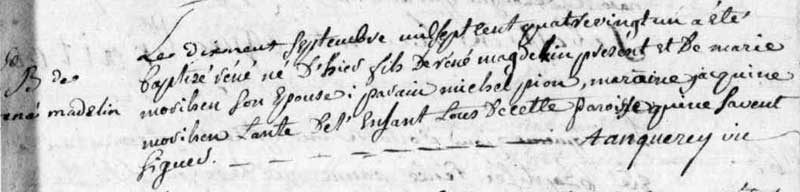 B de
rené madelin
Le dixneuf septembre mil sept cent quatrevingt un a été
baptizé réné né d'hier fils de réné magdelin présent et de marie
morihen son épouse : parain michel pion, maraine jacquine
morihen tante de l'enfant tous de cette paroisse qui ne savent
signer.
tanquerey vic